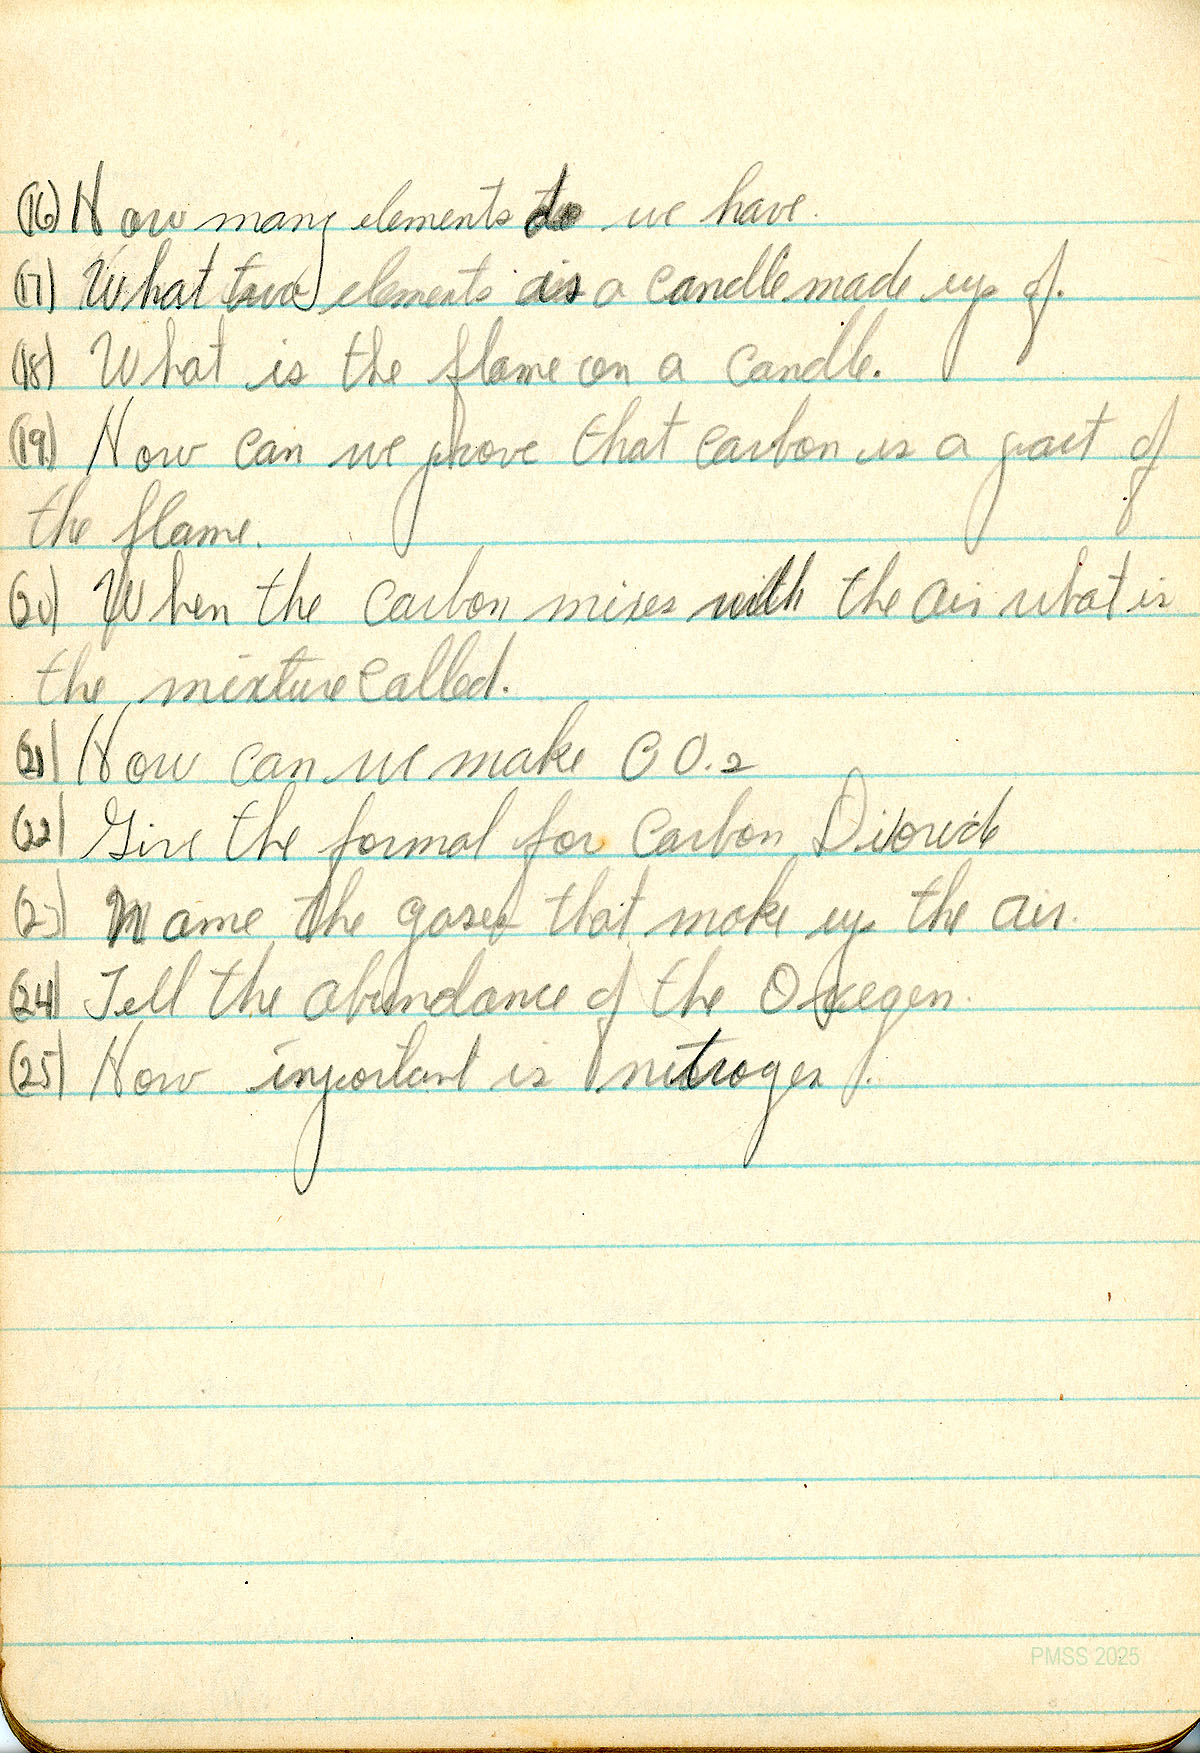 (16) How many elements do we have.
(17) What two elements is a candle made up of.
(18) What is the flame on a candle.
(19) How can we prove that carbon is a part of
the flame.
(20) When the carbon mixes with the air what is
the mixture called.
(21) How can we make CO.2
(22) Give the formal for Carbon Dioxide
(23) Name the gases that make up the air.
(24) Tell the abundance of the Oxegen.
(25) How important is nitrogen.
PMSS 2025